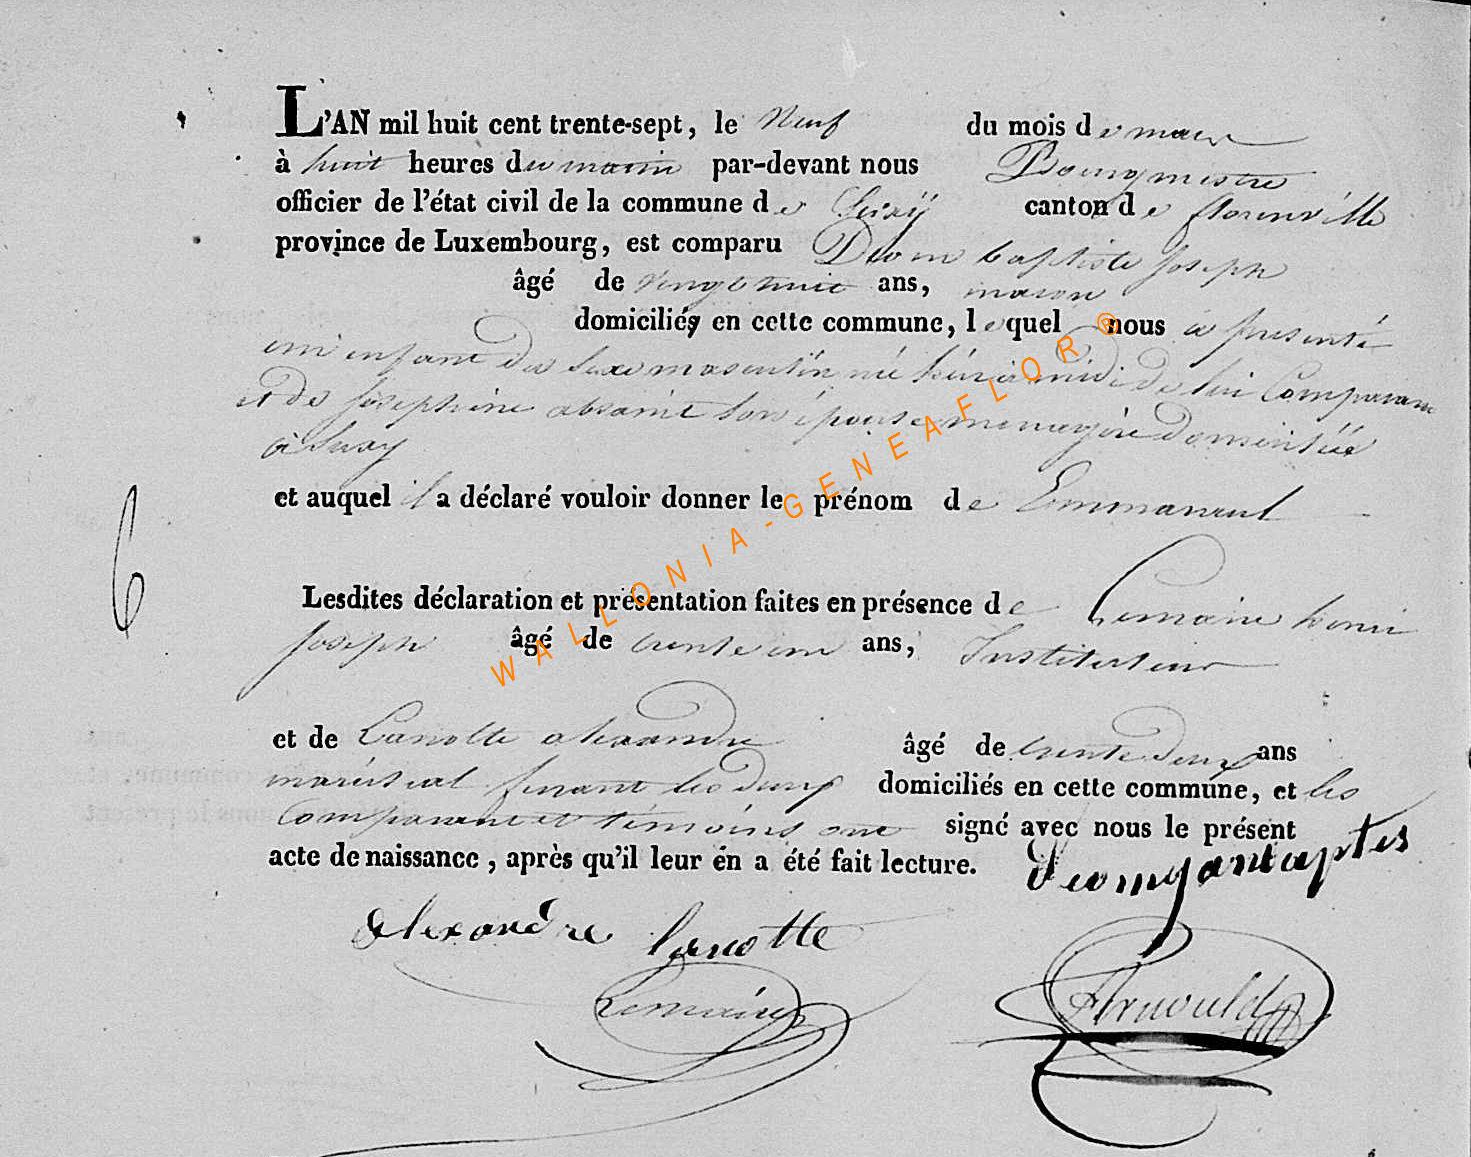 L'AN mil huit cent trente-sept, le Neuf du mois de mars
à huit heures du matin par-devant nous Bourgmestre
officier de l'état civil de la commune de canton de florenville
province de Luxembourg, est comparu Dion baptiste Joseph
âgé de vingt huit ans, maçon
domiciliés en cette commune, lequel nous a présenté
un enfant du sexe masculin né hier à midi de lui Comparant
et de Joséphine son épouse menagère domiciliée
à Suxy
et auquel il a déclaré vouloir donner le prénom de Emmanuel
6
Lesdites déclaration et présentation faites en présence de Lemaire henri
Joseph âgé de trente un ans, Instituteur
et de Lanotte alexandre âgé de trente deux ans
maréchal ferrant les deux domiciliés en cette commune, et les
Comparant et témoins ont signé avec nous le présent
acte de naissance, après qu'il leur en a été fait lecture.
alexandre lanotte
Lemaire
Arnould
WALLONIA-GENEAFLOR®